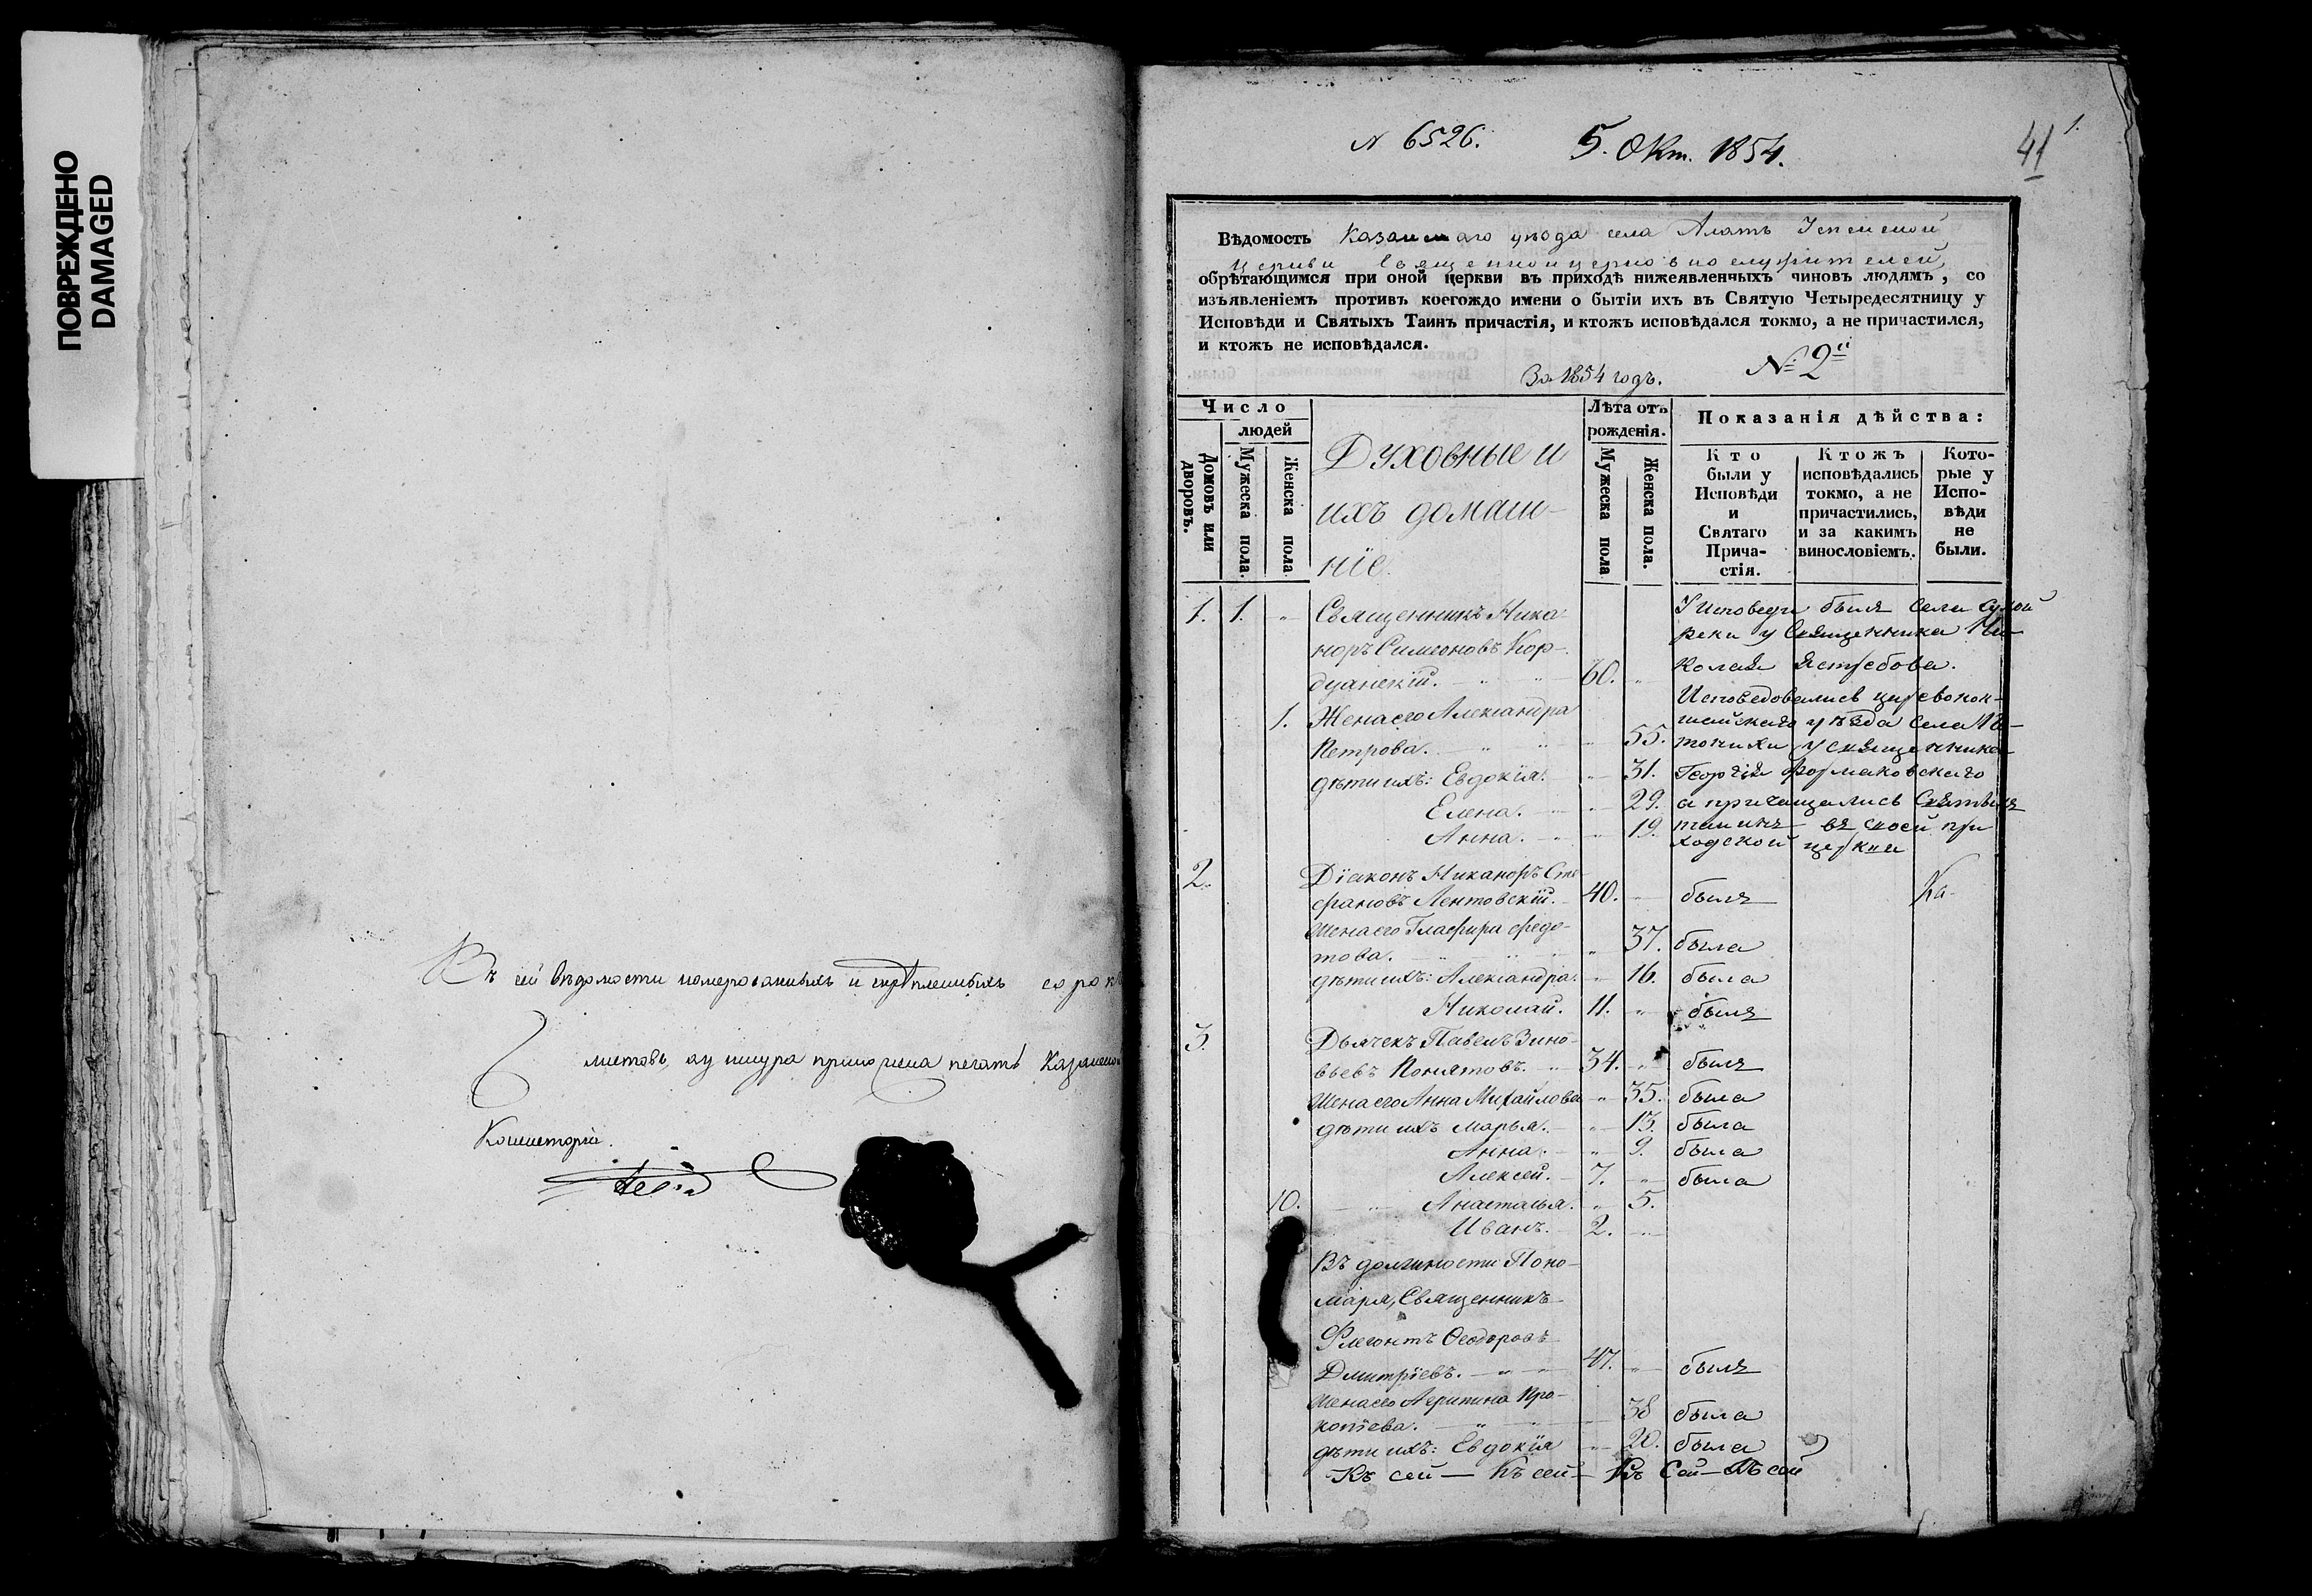 ПОВРЕЖДЕНО
DAMAGED
Въ сей вѣдомости номерованныхъ и скрѣпленныхъ сорокъ
листовъ, ку шнура приложена печать Казанской
Консисторіи.
N 6526. 5. Окт. 1854.
41 1.
Вѣдомость Казанскаго уѣзда села Алатъ Успенской
церкви священноцерковнослужителей,
обрѣтающимся при оной церкви въ приходѣ нижеявленныхъ чиновъ людямъ, со
изъявленіемъ противъ коегождо имени о бытіи ихъ въ Святую Четыредесятницу у
Исповѣди и Святыхъ Таинъ причастія, и ктожъ исповѣдался токмо, а не причастился,
и ктожъ не исповѣдался.
За 1854 годъ. № 2й
Число
людей
Домовъ или дворовъ.
Мужеска пола.
Женска пола
Духовные и
ихъ домаш-
ніе
Лѣта отъ
рожденія.
Мужеска пола
Женска пола.
Показанія дѣйства:
Кто
были у
Исповѣди
и
Святаго
Прича-
стія.
Ктожъ
исповѣдались
токмо, а не
причастились,
и за какимъ
винословіемъ.
Кото-
рые у
Испо-
вѣди
не
были.
1. 1. Священникъ Ника-
норъ Симеоновъ Кор-
дуанскій. 60.
У исповеди былъ села Сухой
реки у Священника Ни-
колая Ястребова.
1. Жена его Александра
Петрова. 55.
дѣти ихъ: Евдокія. 31.
Елена. 29.
Анна. 19.
Исповедовались царевокок-
шайскаго уѣзда села
у священника
Георгія Формаковскаго
а причащались Святыхъ
таинъ въ своей при
ходской церкви
2. Діаконъ Никаноръ Сте-
фановъ Лентовскій. 40. былъ Ка-
Жена его Глафира Федо-
това. 37. была
дѣти ихъ: Александра. 16. была
Николай. 11. былъ
3. Дьячекъ Павелъ Зино-
вьевъ Понятовъ. 34. былъ
Жена его Анна Михайлова 35. была
дѣти ихъ Марья. 13. была
Анна. 9. была
Алексей. 7. была
10. Анастасья. 5.
Иванъ. 2.
Въ должности Поно-
маря, Священникъ
Флегонтъ Ѳеодоровъ
Дмитріевъ. 47. былъ
Жена его Агрипина Про-
копіева. 38 была
дѣти ихъ: Евдокія 20. была
Къ сей — Къ сей — Къ Сей — Къ сей